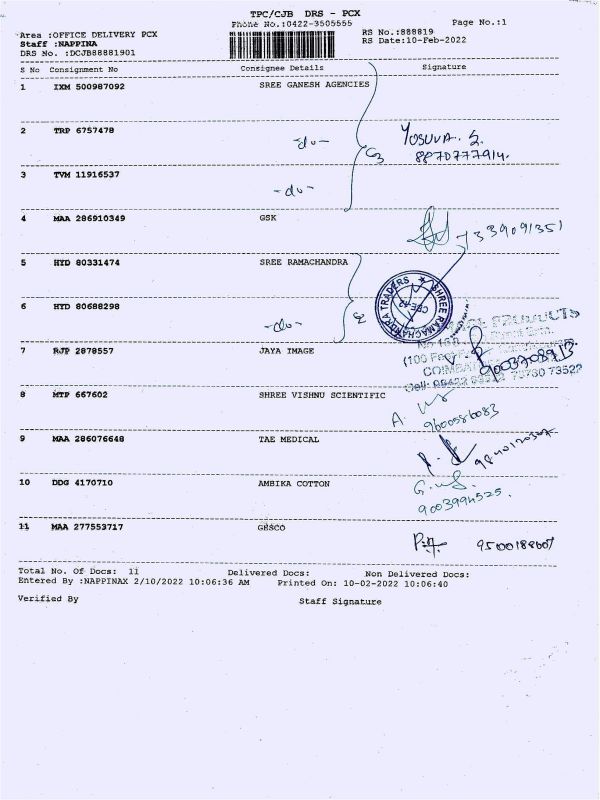 TPC/CJB DRS - PCX
Phone No.:0422-3505555
Page No.:1
Area :OFFICE DELIVERY PCX
RS No.:888819
Staff :NAPPINA
RS Date:10-Feb-2022
DRS No. :DCJB88881901
S No Consignment No Consignee Details Signature
1 IXM 500987092 SREE GANESH AGENCIES
2 TRP 6757478 -do- YOSUVA. S.
8870777914.
3 TVM 11916537 -do-
4 MAA 286910349 GSK 7339091351
5 HYD 80331474 SREE RAMACHANDRA
SHREE RAMACHANDRA TRADERS
6 HYD 80688298 -do-
7 RJP 2878557 JAYA IMAGE
(100 Feet
73730 73522
8 MTP 667602 SHREE VISHNU SCIENTIFIC
9600586083
9 MAA 286076648 TAE MEDICAL
10 DDG 4170710 AMBIKA COTTON
9003994525.
11 MAA 277553717 GESCO
Total No. Of Docs: 11 Delivered Docs: Non Delivered Docs:
Entered By :NAPPINAX 2/10/2022 10:06:36 AM Printed On: 10-02-2022 10:06:40
Verified By Staff Signature